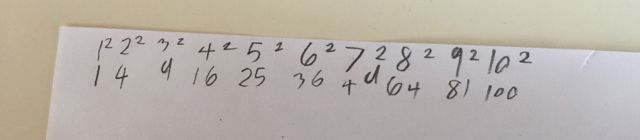 1² 2² 3² 4² 5² 6² 7² 8² 9² 10²
1 4 9 16 25 36 49 64 81 100